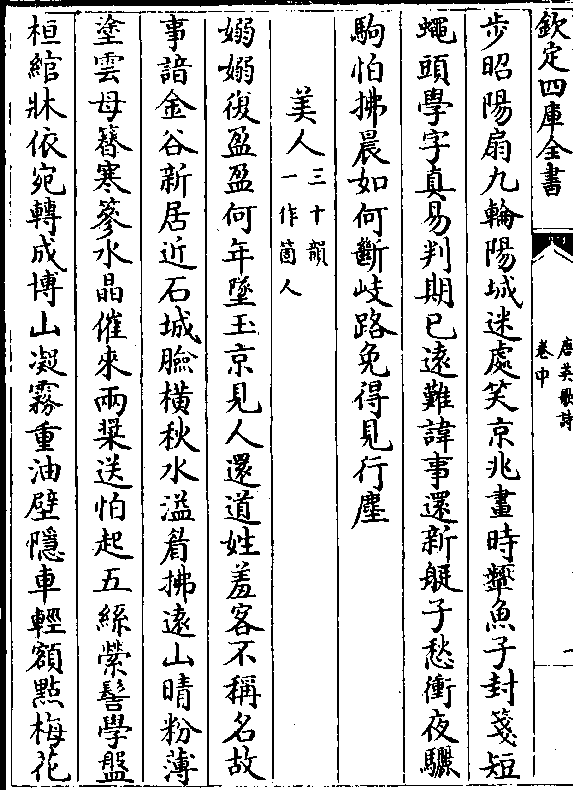 欽定四庫全書
唐英歌詩
卷中
一
步昭陽扇九輪陽城迷處笑京兆畫時顰魚子封箋短
蠅頭學字真易判期已遠難諱事還新艇子愁衝夜驪
駒怕拂晨如何斷岐路免得見行塵
美人三十韻
一作箇人
嫋嫋復盈盈何年墜玉京見人還道姓羞客不稱名故
事諳金谷新居近石城臉橫秋水溢眉拂遠山晴粉薄
塗雲母簪寒篸水晶催來兩槳送怕起五絲縈髻學盤
桓綰牀依宛轉成博山凝霧重油壁隱車輕額點梅花